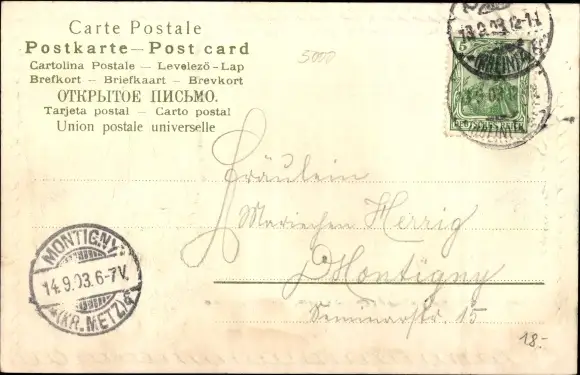 Carte Postale
Postkarte — Post card
Cartolina Postale — Levelező-Lap
Brefkort — Briefkaart — Brevkort
ОТКРЫТОЕ ПИСЬМО.
Tarjeta postal — Carto postal
Union postale universelle
5000
13.9.03.12-1
5
Fräulein
Mariechen Herrig
Montigny
Seminarstr. 15
MONTIGNY
14.9.03.6-7V.
(KR. METZ)
18.-